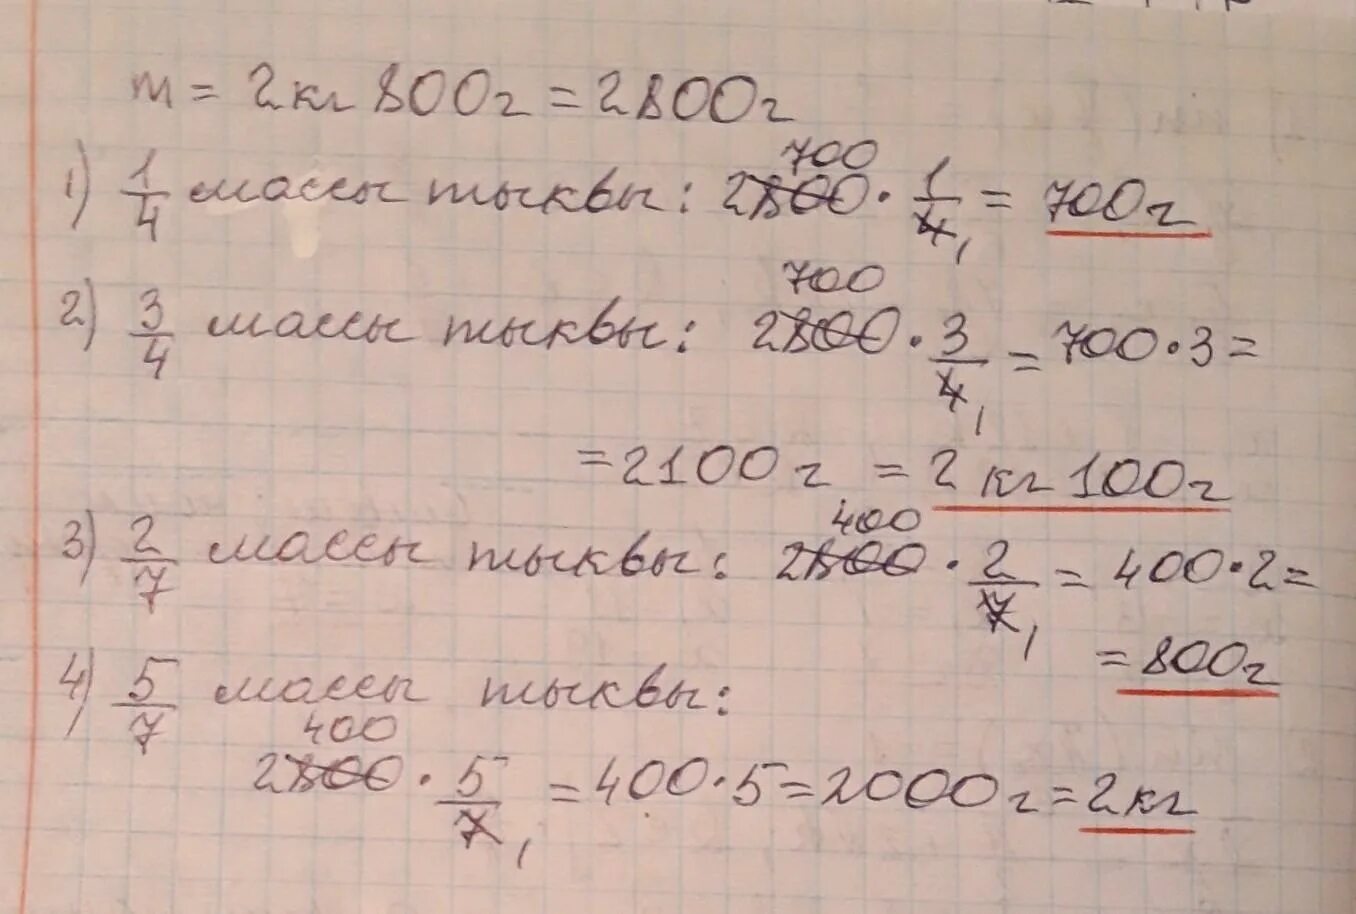 m = 2кг 800г = 2800г
700
1) 1/4 массы тыквы: 2800 · 1/4 1 = 700г
700
2) 3/4 массы тыквы: 2800 · 3/4 1 = 700 · 3 =
= 2100 г = 2 кг 100г
400
3) 2/7 массы тыквы: 2800 · 2/7 1 = 400 · 2 =
= 800г
4) 5/7 массы тыквы:
400
2800 · 5/7 1 = 400 · 5 = 2000 г = 2 кг